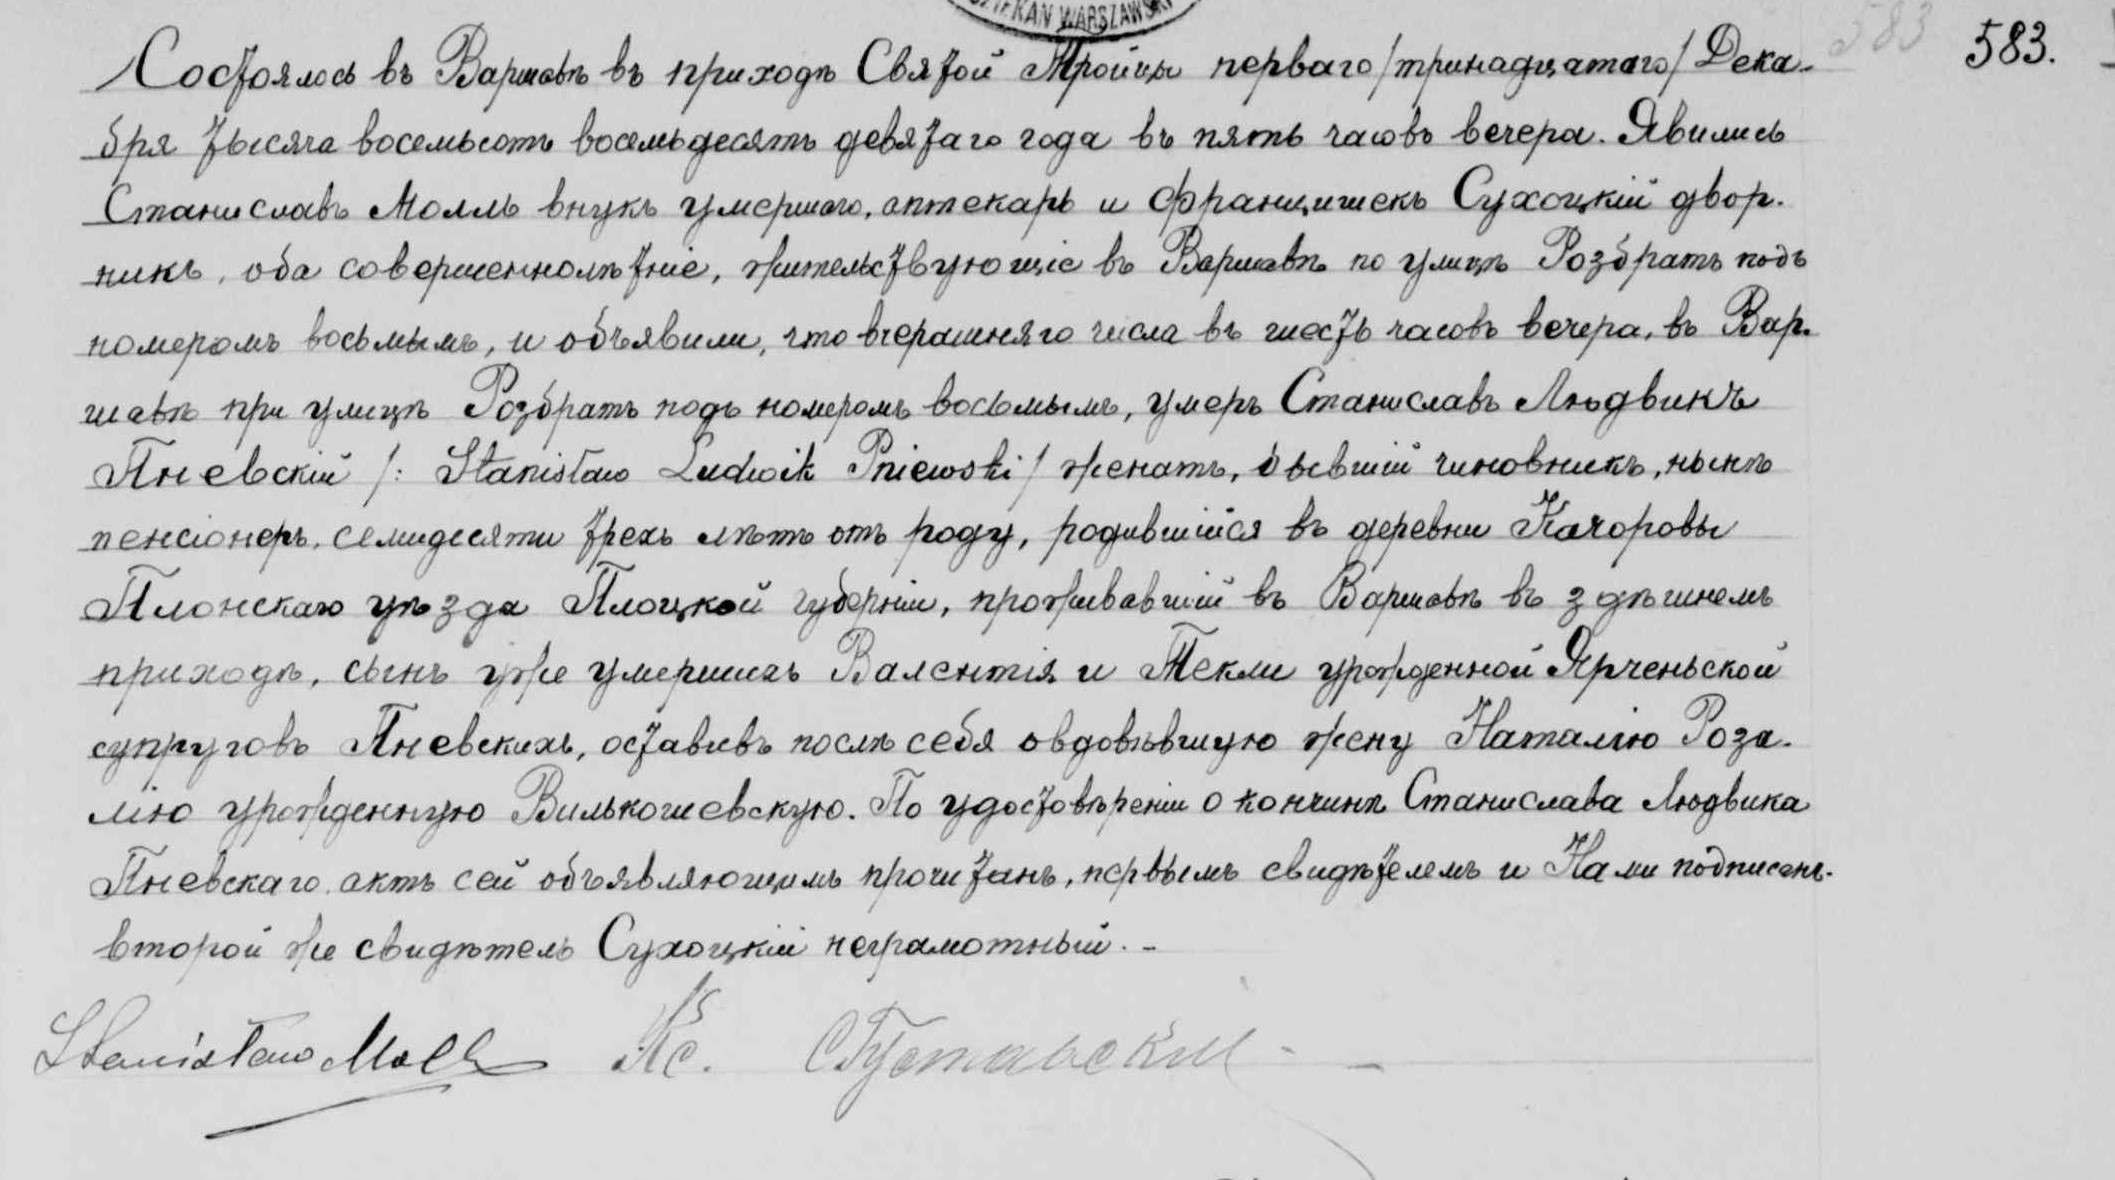 DZIEKAN WARSZAWSKI
583 583.
Состоялось въ Варшавѣ въ приходѣ Святой Тройцы перваго /тринадцатаго/ Дека-
бря тысяча восемьсотъ восемьдесятъ девятаго года въ пять часовъ вечера. Явились
Станиславъ Молль внукъ умершаго, аптекарь и Францишекъ Сухоцкій двор-
никъ, оба совершеннолѣтніе, жительствующіе въ Варшавѣ по улицѣ Розбратъ подъ
номеромъ восьмымъ, и объявили, что вчерашняго числа въ шесть часовъ вечера, въ Вар-
шавѣ при улицѣ Розбратъ подъ номеромъ восьмымъ, умеръ Станиславъ Людвикъ
Пневскій /: Stanisław Ludwik Pniewski / женатъ, бывшій чиновникъ, нынѣ
пенсіонеръ, семидесяти трехъ лѣтъ отъ роду, родившійся въ деревни Качоровы
Плонскаго уѣзда Плоцкой губерніи, проживавшій въ Варшавѣ въ здѣшнемъ
приходѣ, сынъ уже умершихъ Валентія и Текли урожденной Ярченьской
супруговъ Пневскихъ, оставивъ послѣ себя овдовѣвшую жену Наталію Роза-
лію урожденную Вилькошевскую. По удостовѣреніи о кончинѣ Станислава Людвика
Пневскаго, актъ сей объявляющимъ прочитанъ, первымъ свидѣтелемъ и Нами подписанъ.
второй же свидѣтель Сухоцкій неграмотный. -
Stanisław Moll Кс.